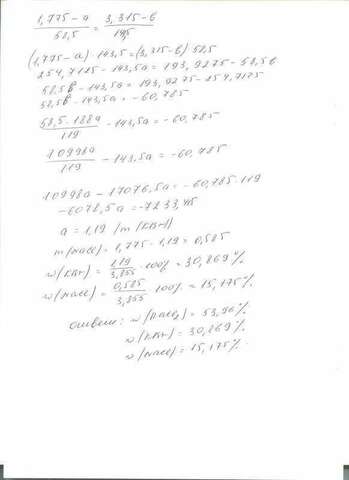 1,775-a / 58,5 = 3,315-в / 143,5
(1,775-a)·143,5=(3,315-в)58,5
254,7125-143,5a=193,9275-58,5в
58,5в-143,5a=193,9275-254,7125
58,5в-143,5a=-60,785
58,5·188a / 119 -143,5a=-60,785
10998a / 119 -143,5a=-60,785
10998a-17076,5a=-60,785·119
-6078,5a=-7233,415
a=1,19 /m(KBr)
m(NaCl)=1,775-1,19=0,585
w(KBr)= 1,19 / 3,855 ·100%=30,869%
w(NaCl)= 0,585 / 3,855 ·100%=15,175%
ответ: w(BaCl₂)=53,96%
w(KBr)=30,869%
w(NaCl)=15,175%